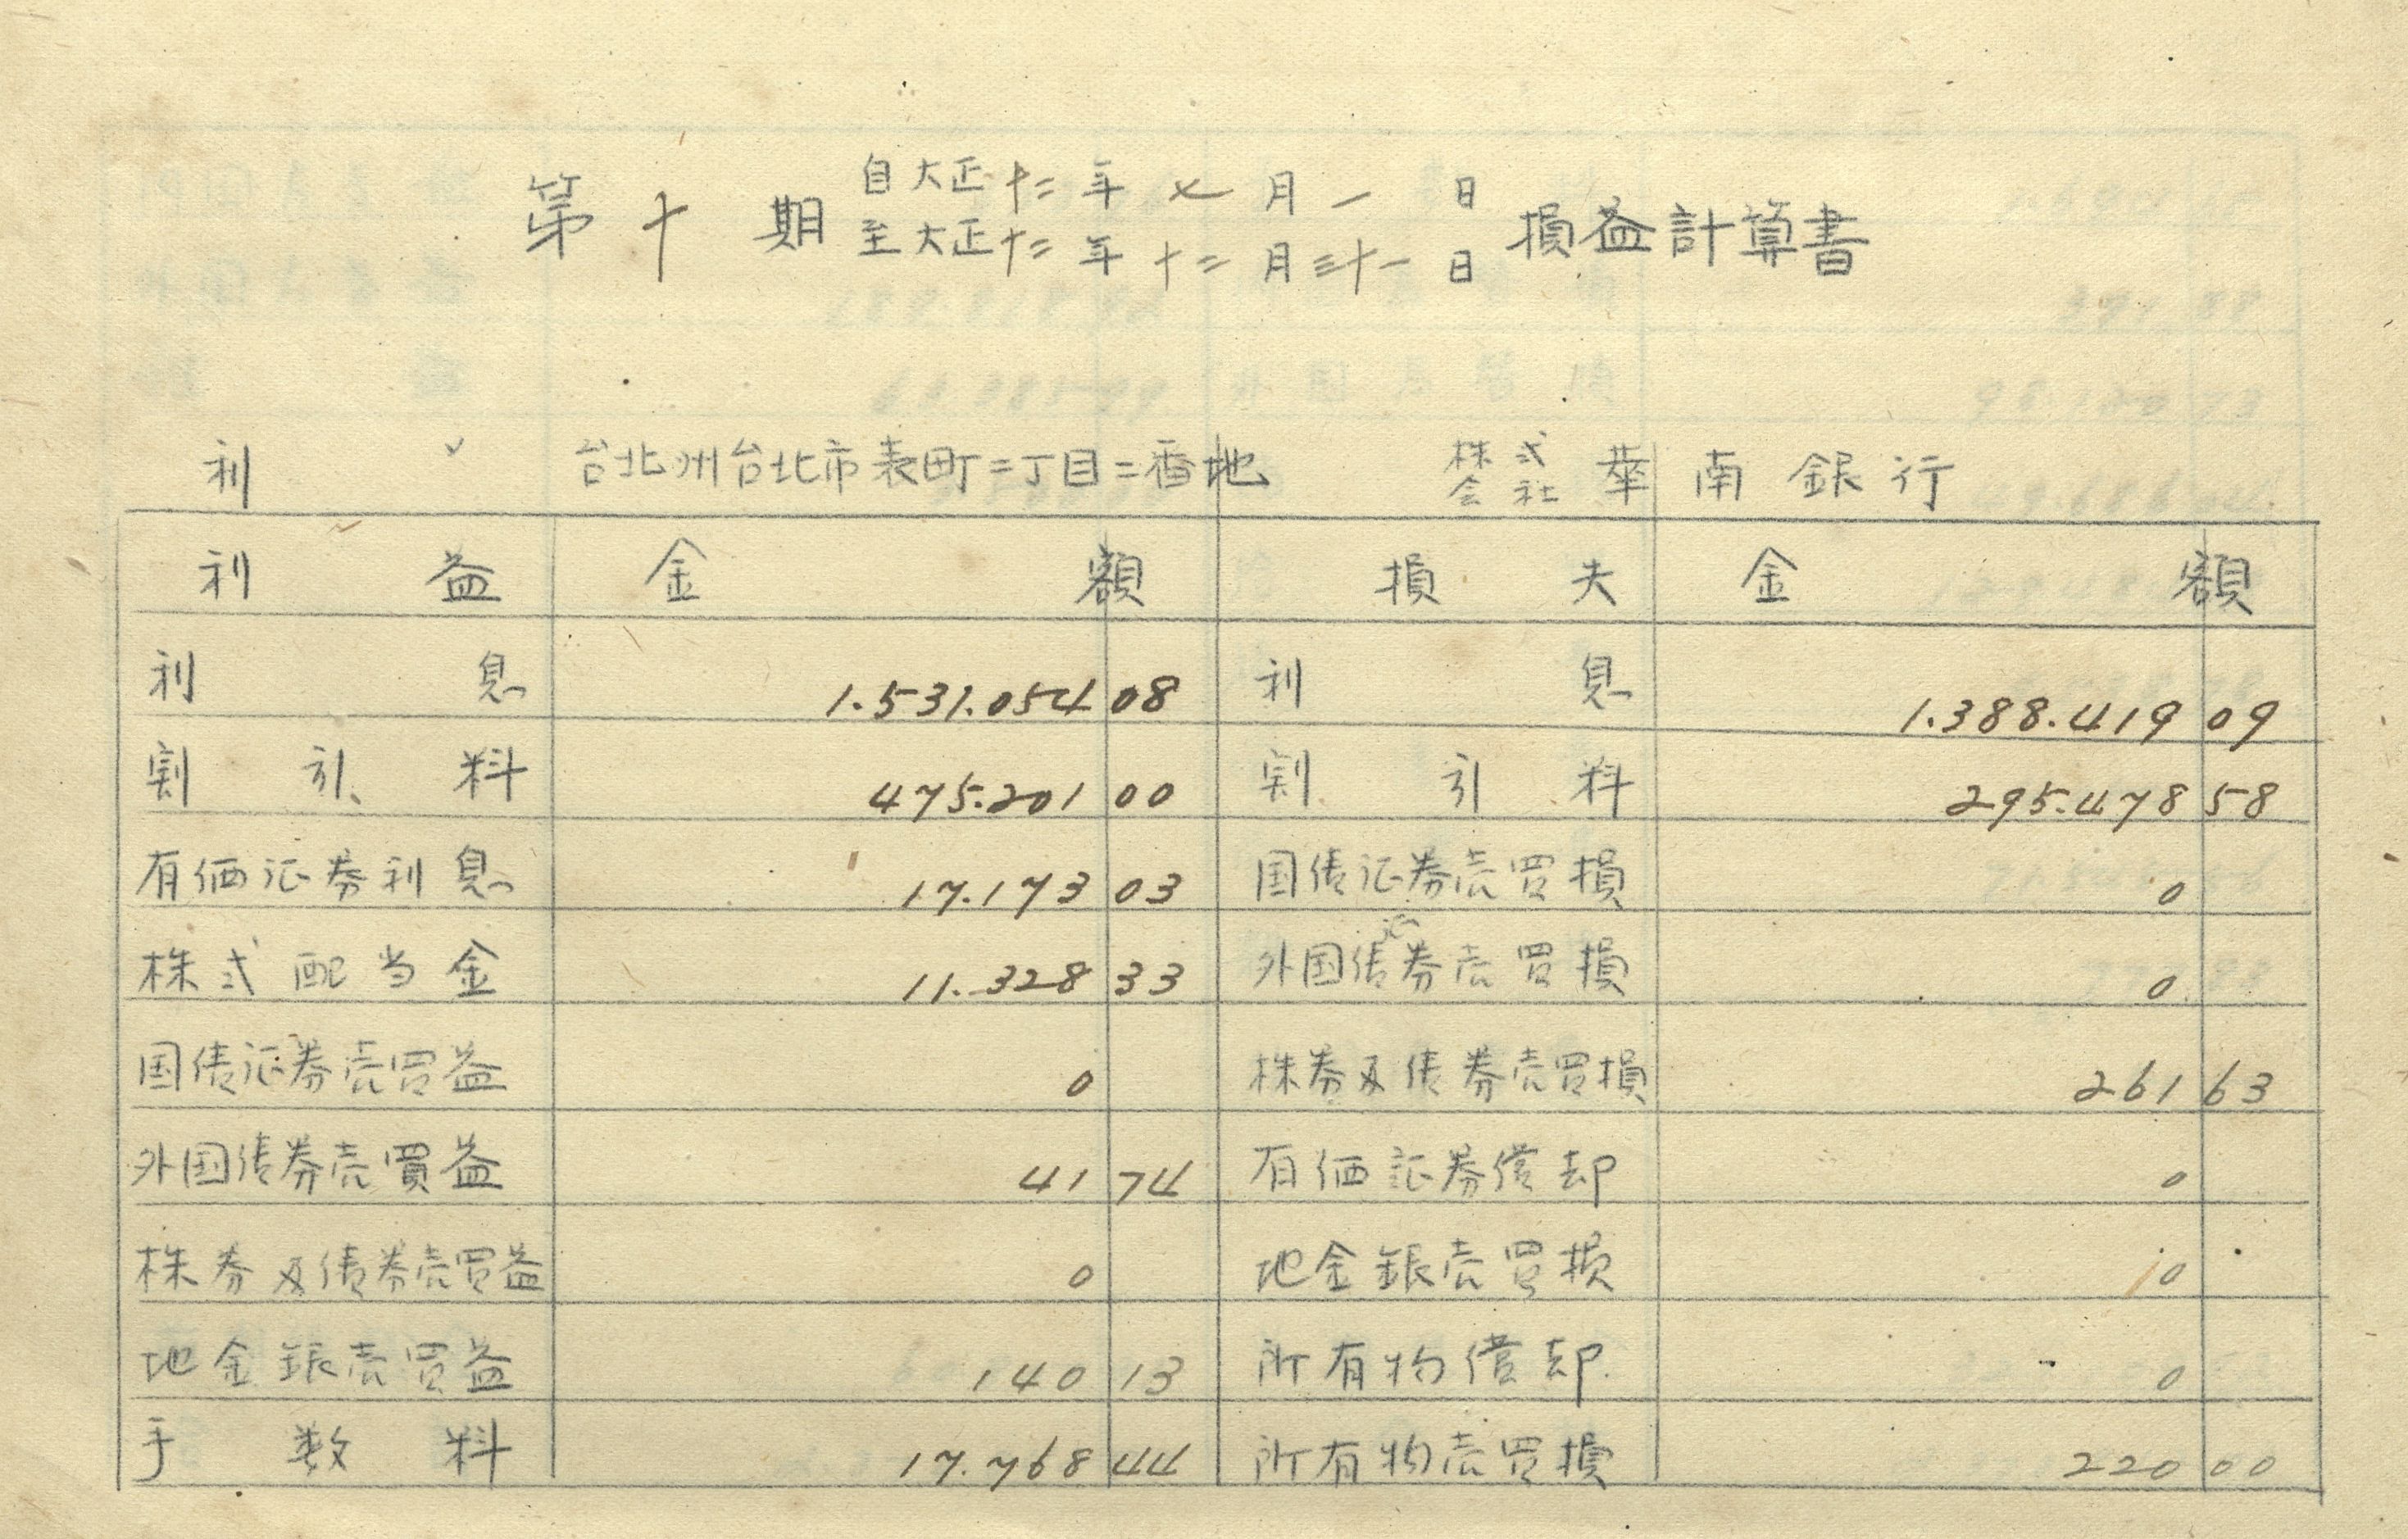 第十期 自大正十二年七月一日 損益計算書
至大正十二年十二月三十一日
利 台北州台北市表町二丁目二番地 株式会社 華南銀行
利益 金額 損失 金額
利息 1.531.054 08 利息 1.388.419 09
割引料 475.201 00 割引料 295.478 58
有価証券利息 17.173 03 国債証券売買損 0
株式配当金 11.328 33 外国債券売買損 0
国債証券売買益 0 株券及債券売買損 261 63
外国債券売買益 41 74 有価証券償却 0
株券及債券売買益 0 地金銀売買損 0
地金銀売買益 140 13 所有物償却 0
手数料 17.768 44 所有物売買損 220 00